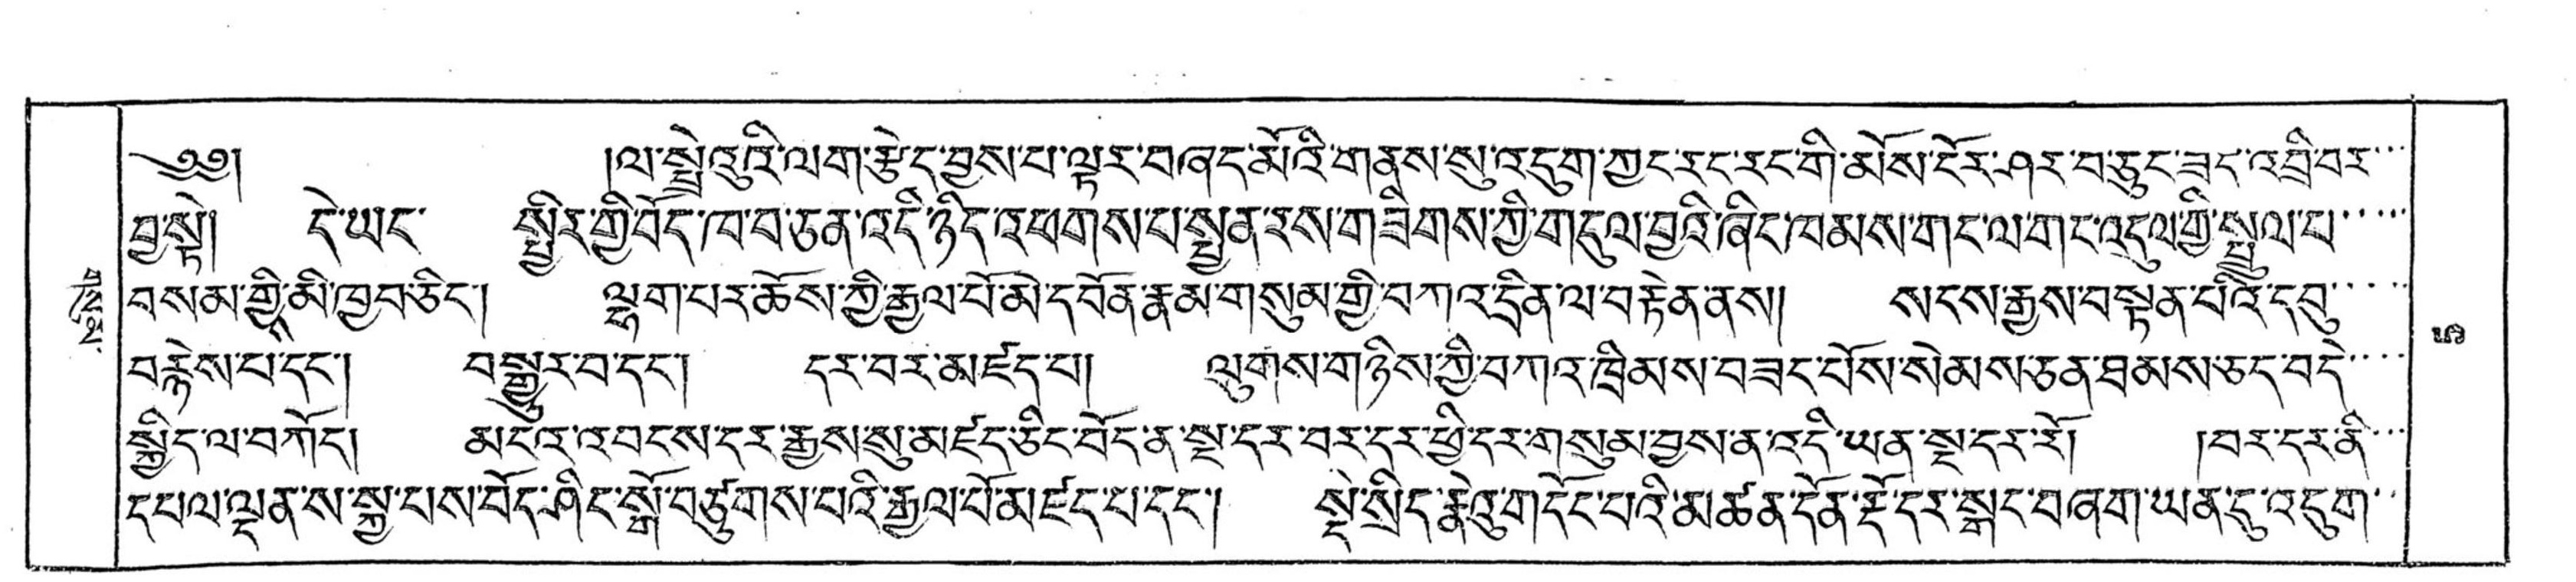 ༄༅། །ལ་སྤྲེའུའི་ལག་རྩེད་བྱས་པ་ལྟར་བཞད་མོའི་གནས་སུ་འདུག་ཀྱང་རང་རང་གི་མོས་ངོར་ཤར་བ་ཅུང་ཟད་འབྲི་བར
བྱ་སྟེ། དེ་ཡང་ སྤྱིར་གྱི་བོད་ཁ་བ་ཅན་འདི་ཉིད་འཕགས་པ་སྤྱན་རས་གཟིགས་ཀྱི་གདུལ་བྱའི་ཞིང་ཁམས་གང་ལ་གང་འདུལ་གྱི་སྤྲུལ་པ
བསམ་གྱི་མི་ཁྱབ་ཅིང་། ལྷག་པར་ཆོས་ཀྱི་རྒྱལ་པོ་མེ་དབོན་རྣམ་གསུམ་གྱི་བཀའ་དྲིན་ལ་བརྟེན་ནས། སངས་རྒྱས་བསྟན་པའི་དབུ
བརྙེས་པ་དང་། བསྒྱུར་བ་དང་། དར་བར་མཛད་པ། ལུགས་གཉིས་ཀྱི་བཀའ་ཁྲིམས་བཟང་པོས་སེམས་ཅན་ཐམས་ཅད་བདེ
སྐྱིད་ལ་བཀོད། མངའ་འབངས་དར་རྒྱས་སུ་མཛད་ཅིང་བོད་ན་སྔ་དར་བར་དར་ཕྱི་དར་གསུམ་བྱས་ན་འདི་ཡན་སྔ་དར་རོ། །བར་དར་ནི
དཔལ་ལྡན་ས་སྐྱ་པས་བོད་ཤིང་སྒོ་བཙུགས་པའི་རྒྱལ་པོ་མཛད་པ་དང་། སྡེ་སྲིད་སྣེའུ་གདོང་པའི་མཚན་དོན་རྡོ་དར་སྒང་བཞག་ཡན་དུ་འདུག